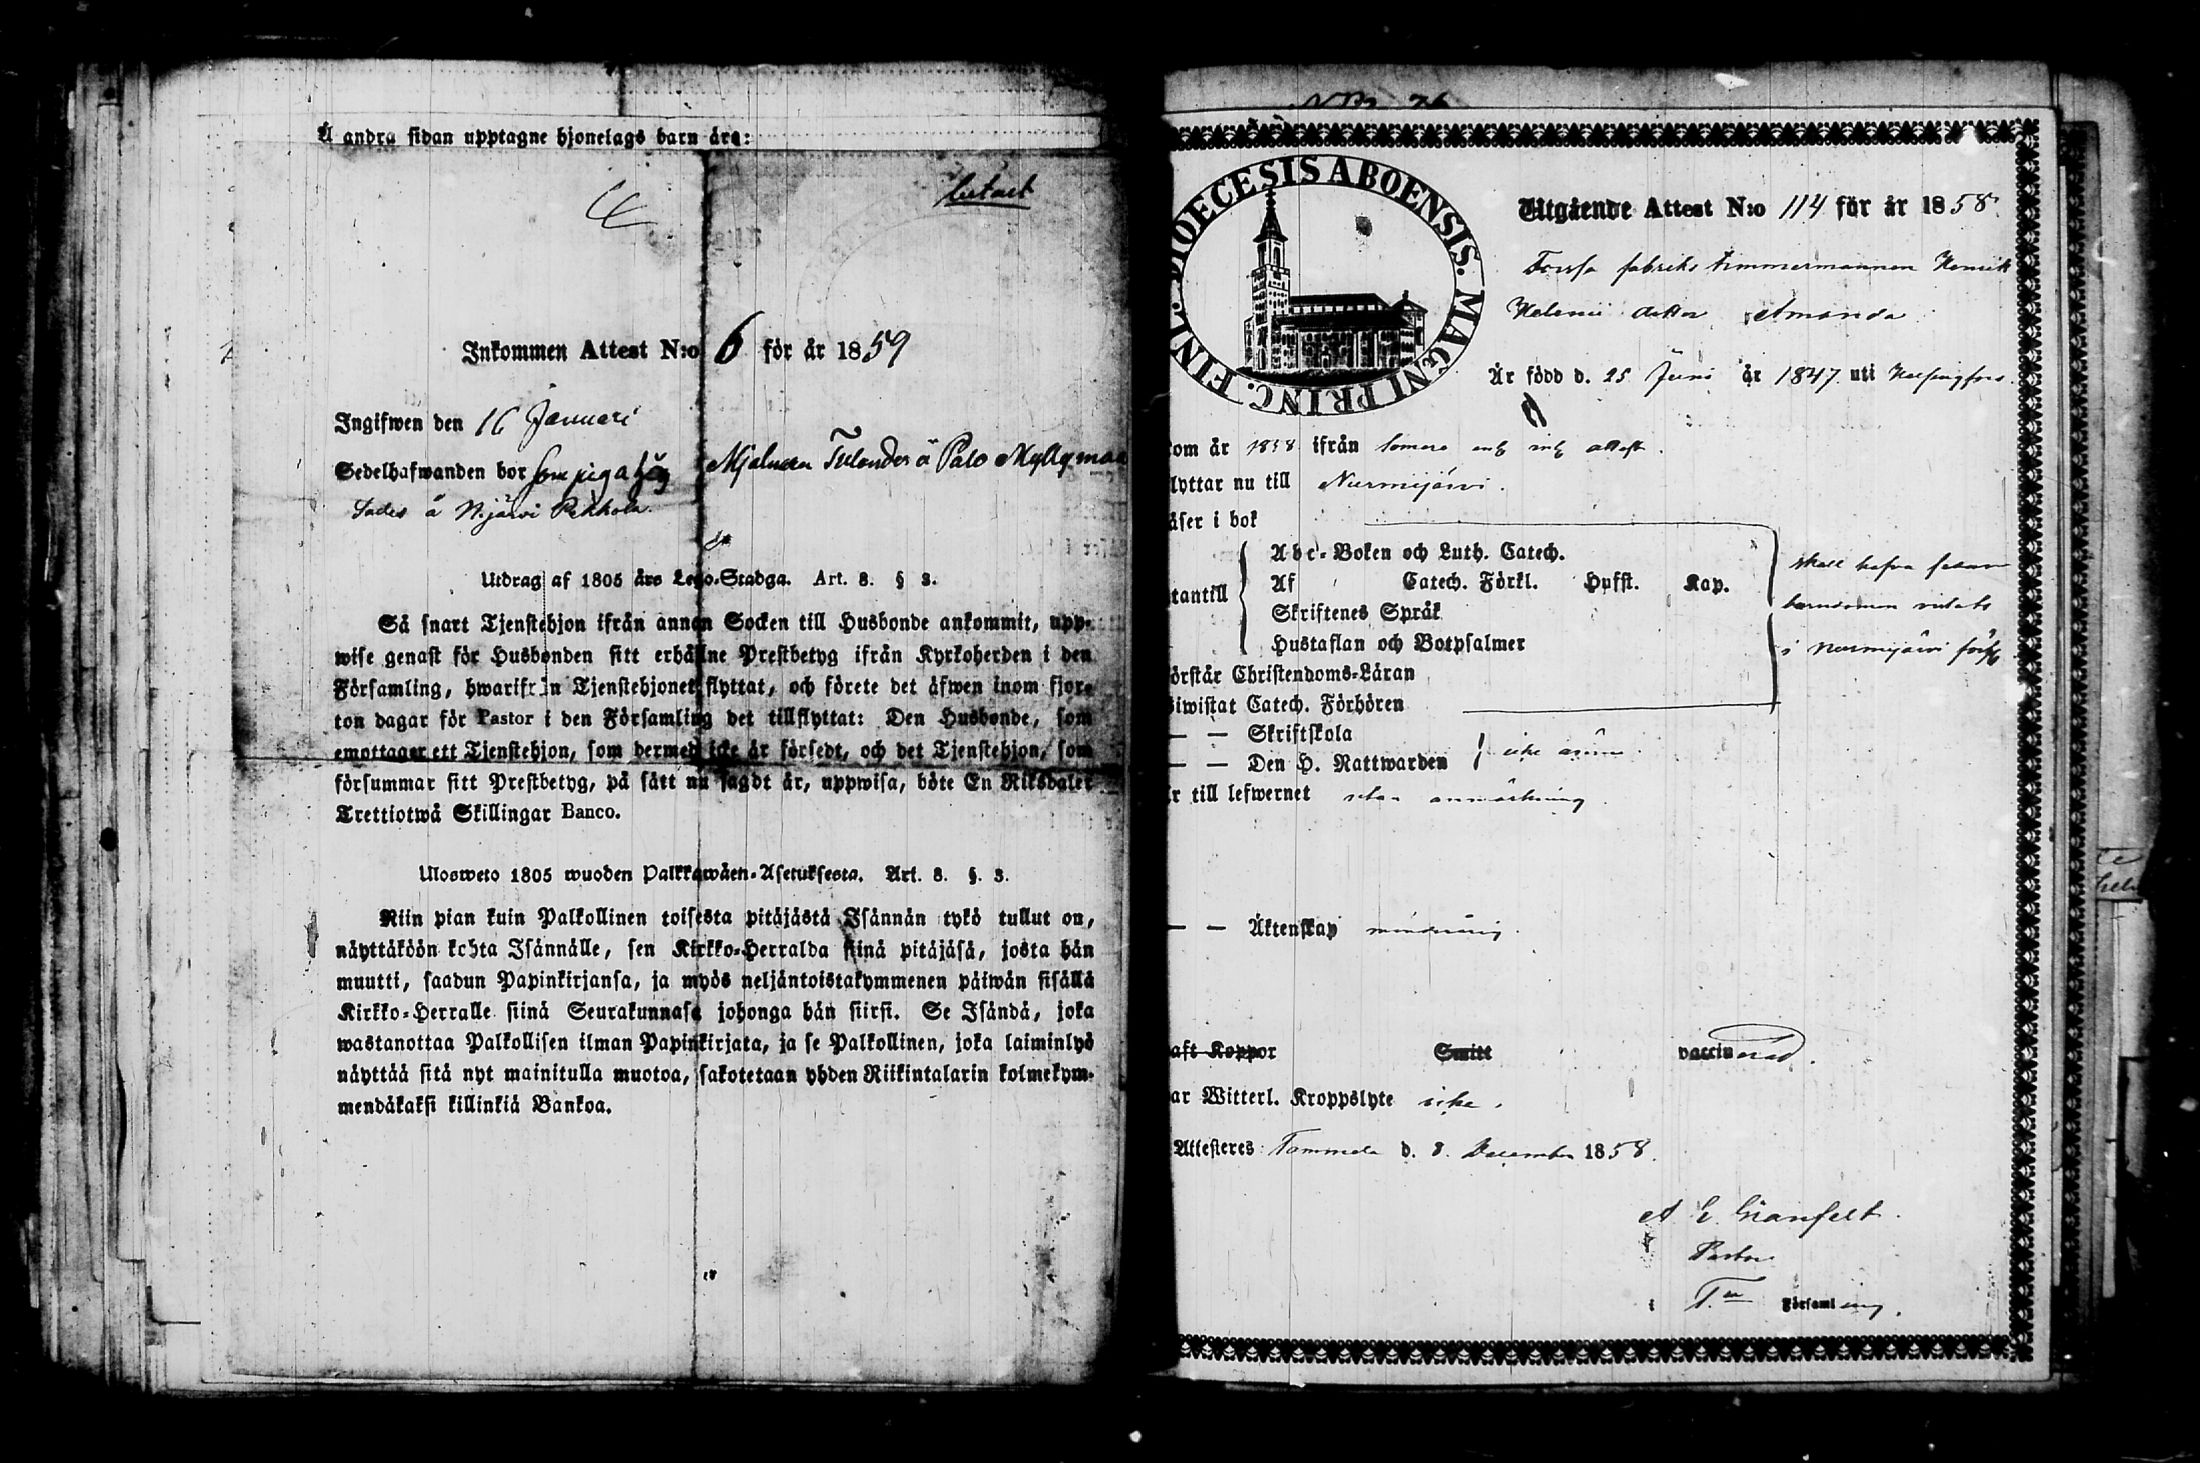 Å andra sidan upptagne hjonelags barn äro:
Inkommen Attest N:o 6 för år 1859
Ingifwen den 16 Januari
Sedelhafwanden bor som piga hos Mjelnern Tulander å Palo Myllymaa
å Njärvi Pekkola
Utdrag af 1805 års Lego-Stadga. Art. 8. § 3.
Så snart Tjenstehjon ifrån annan Socken till Husbonde ankommit, upp-
wise genast för Husbonden sitt erhållne Prestbetyg ifrån Kyrkoherden i den
Församling, hwarifrån Tjenstehjonet flyttat, och förete det äfwen inom fjor-
ton dagar för Pastor i den Församling det tillflyttat: Den Husbonde, som
emottager ett Tjenstehjon, som dermed icke är försedt, och det Tjenstehjon, som
försummar sitt Prestbetyg, på sätt nu sagdt är, uppwisa, böte En Riksdaler
Trettiotwå Skillingar Banco.
Ulosweto 1805 wuoden Palkkawäen-Asetuksesta. Art. 8. §. 3.
Niin pian kuin Palkollinen toisesta pitäjästä Isännän tykö tullut on,
näyttäköön kohta Isännälle, sen Kirkko-Herralda siinä pitäjäsä, josta hän
muutti, saadun Papinkirjansa, ja myös neljäntoistakymmenen päiwän sisällä
Kirkko-Herralle siinä Seurakunnasa johonga hän siirsi. Se Isändä, joka
wastanottaa Palkollisen ilman Papinkirjata, ja se Palkollinen, joka laiminlyö
näyttää sitä nyt mainitulla muotoa, sakotetaan yhden Riikintalarin kolmekym-
mendäkaksi killinkiä Bankoa.
DIOECESIS ABOENSIS. MAGNI PRINC. FINL.
Utgående Attest N:o 114 för år 1858
Forssa fabriks timmermannen Henrik
Helenii dotter Amanda
Är född d. 25 Juni år 1847 uti Helsingfors.
om år 1858 ifrån Somero enl. attest.
lyttar nu till Nurmijärvi.
äser i bok
Abc-Boken och Luth. Catech.
tantill Af Catech. Förkl. Hufst. Kap.
Skriftenes Språk
Hustaflan och Botpsalmer
skall hafva sedan
barndomen vistats
i Nurmijärvi förs.
örstår Christendoms-Läran
iwistat Catech. Förhören
— — Skriftskola
— — Den H. Nattwarden icke ännu.
r till lefwernet utan anmärkning.
— — Äktenskap minderårig.
aft Koppor Smitt vaccinerad.
ar Witterl. Kroppslyte icke.
Attesteres Tammela d. 8. December 1858.
A E Granfelt.
Pastor
i T.la Församling.